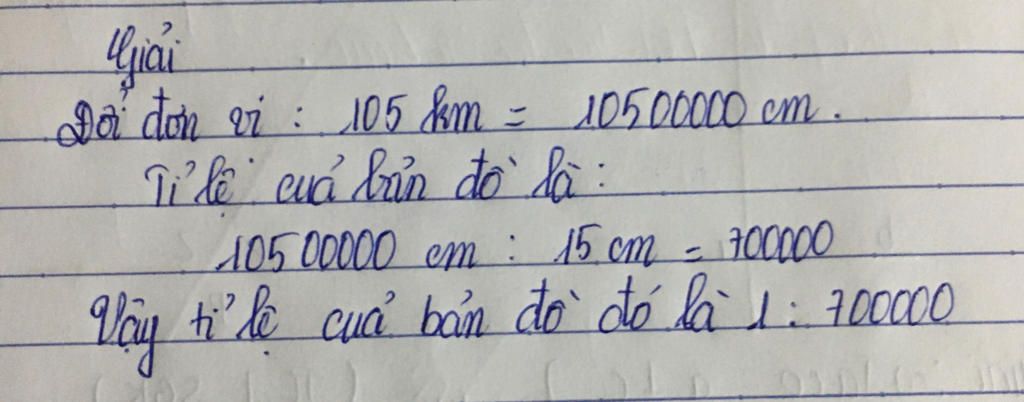 Giải
Đổi đơn vi : 105 km = 10500000 cm.
Tỉ lệ cuả bản đồ là :
10500000 cm : 15 cm = 700000
Vậy tỉ lệ cuả bản đồ đó là 1 : 700000